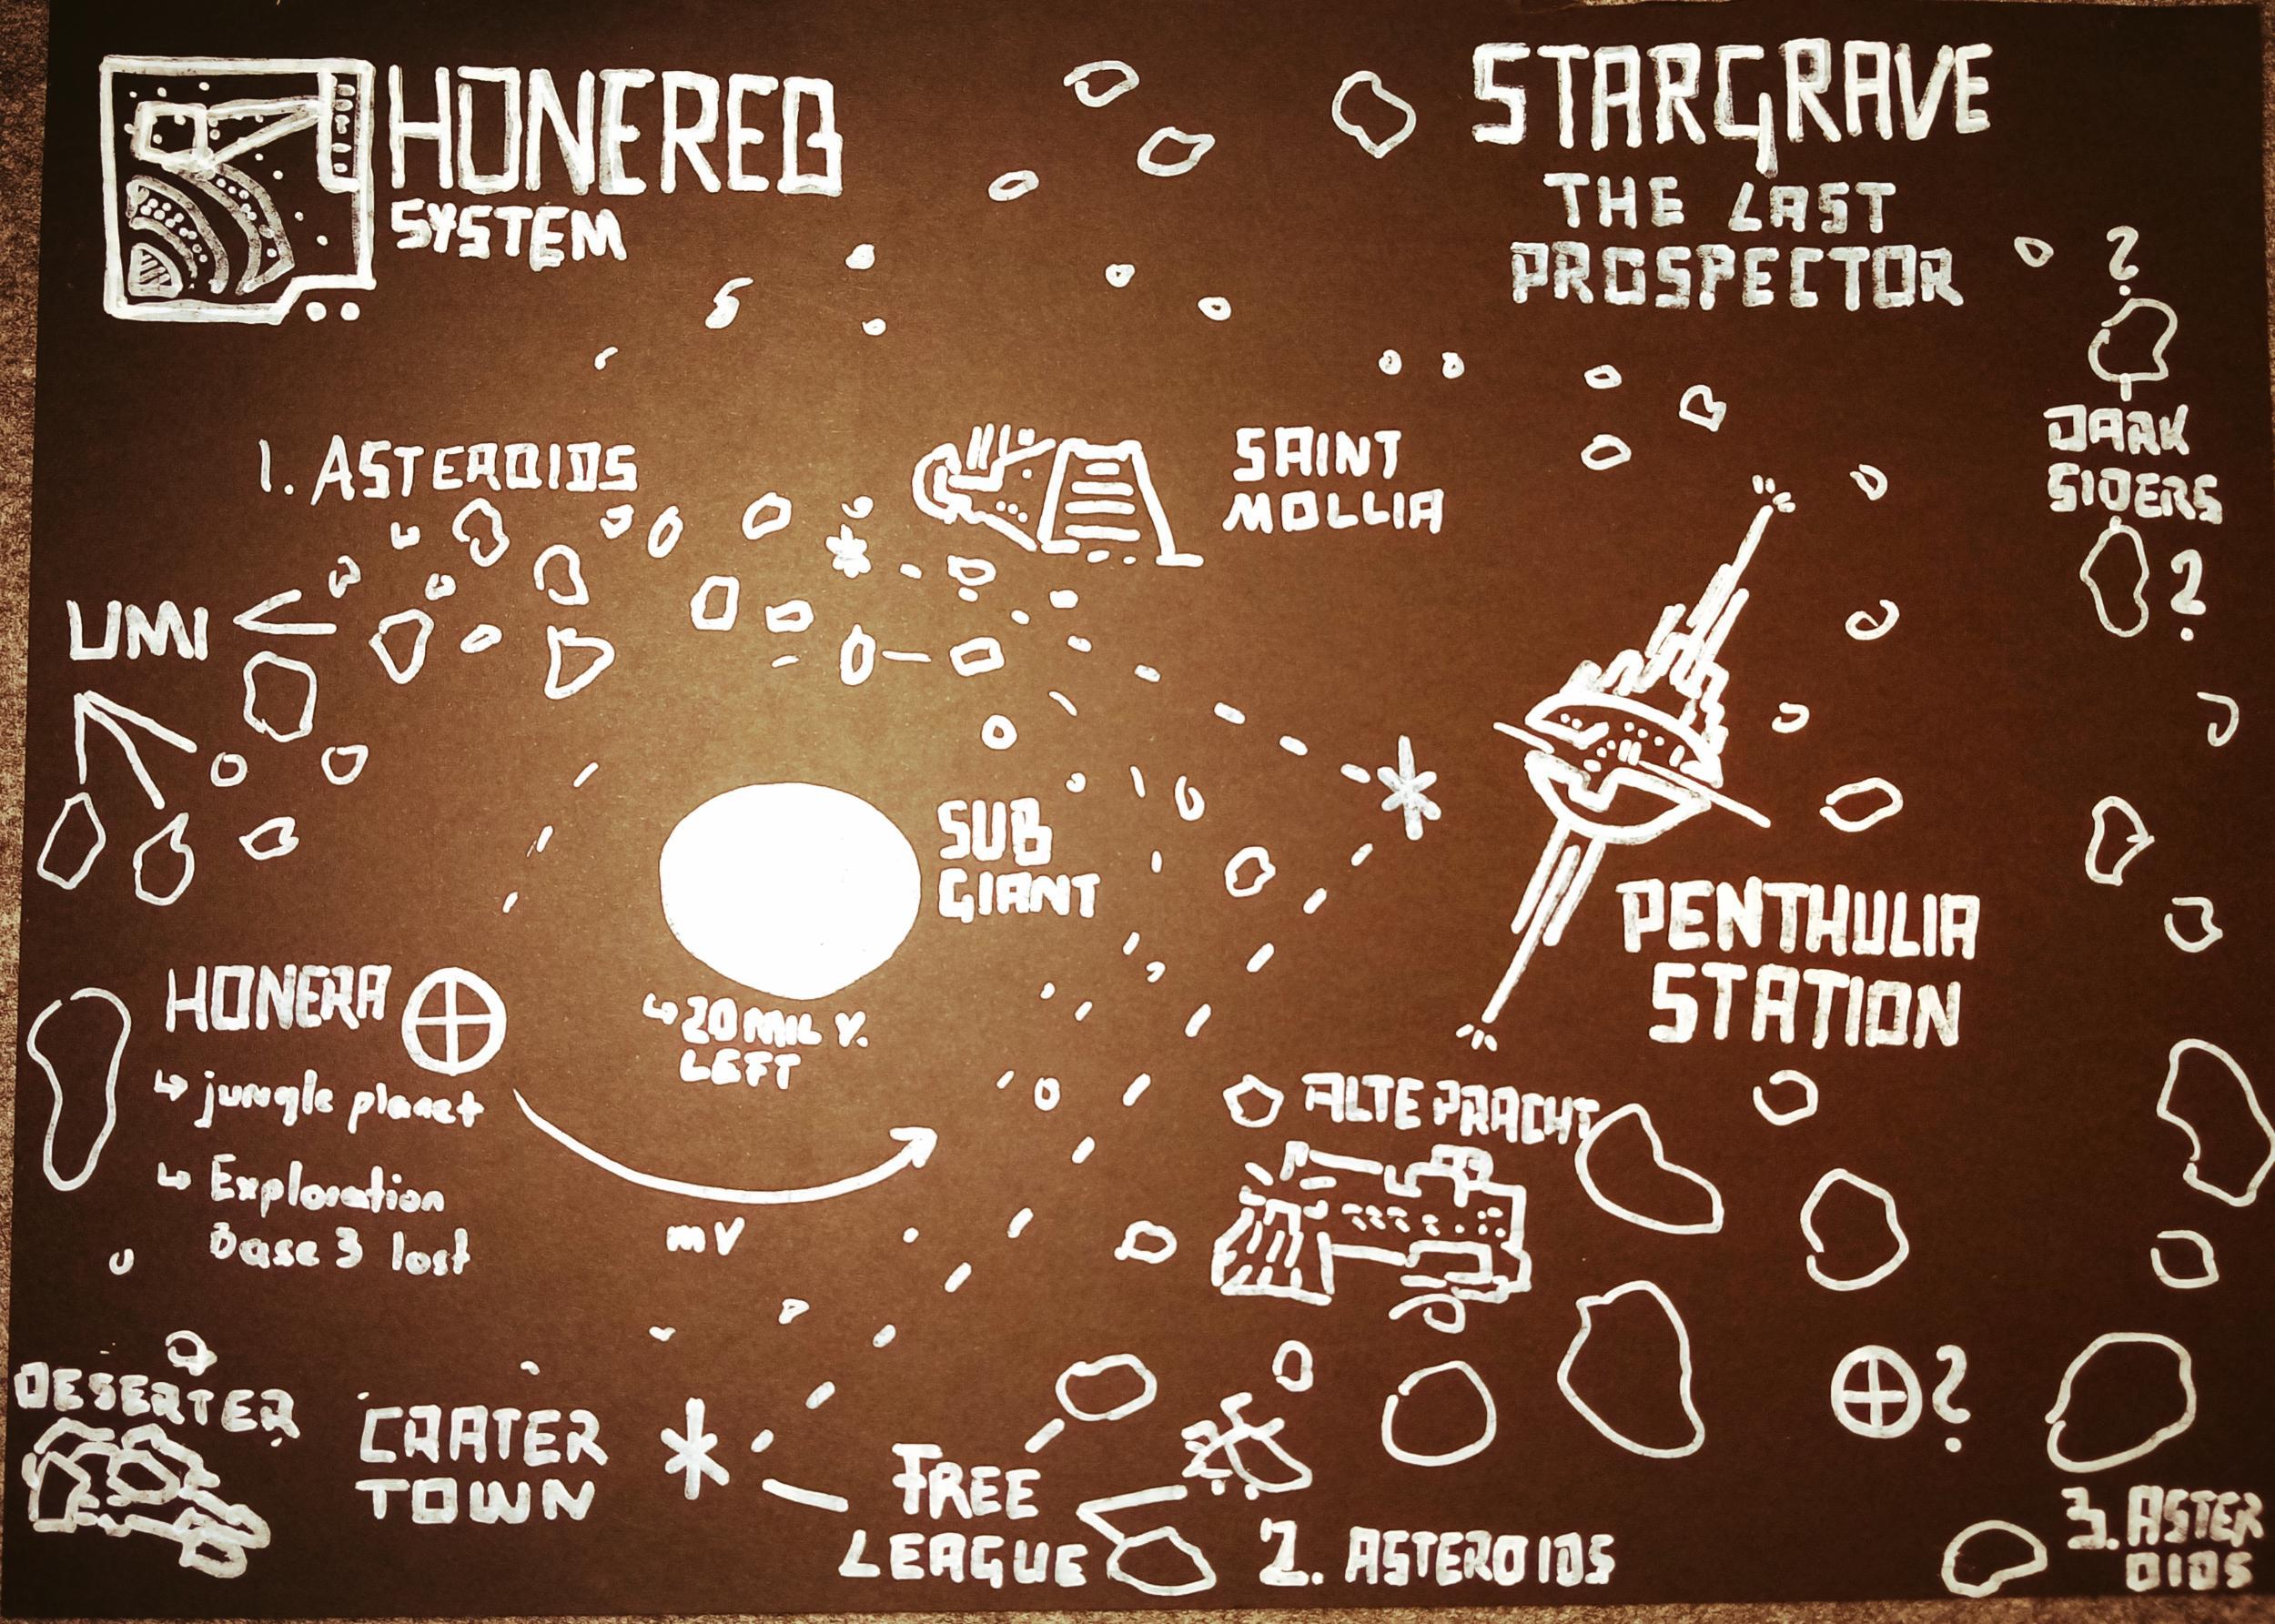 HONEREB
SYSTEM
STARGRAVE
THE LAST
PROSPECTOR
?
DARK
SIDERS
?
1. ASTEROIDS
SAINT
MOLLIA
UMI
SUB
GIANT
↳ 20 MIL Y.
LEFT
PENTHULIA
STATION
HONERA
↳ jungle planet
↳ Exploration
Base 3 lost
mV
ALTE PRACHT
DESERTER
CRATER
TOWN
FREE
LEAGUE
2. ASTEROIDS
?
3. ASTER
OIDS